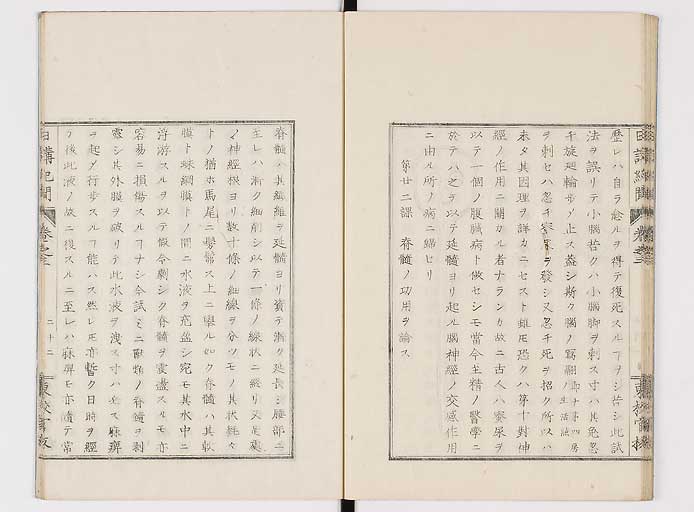 歴レハ自ラ愈ルヲ得テ復死スルヿヲシ若シ此試
法ヲ誤リテ小腦若クハ小腦脚ヲ刺ス寸ハ其免忽
チ旋廻輪歩ノ止ス蓋シ斯ク腦ノ篤翮即十第四房生活法
ヲ刺セハ忽チ蜜尿ヲ發シ又忽チ死ヲ招ク所以ハ
未タ其因理ヲ詳カニセスト雖𪜈恐クハ第十對神
經ノ作用ニ關カル者ナランカ故ニ古人ハ蜜尿ヲ
以テ一個ノ腹臓病ト做セシモ當今主精ノ醫學ニ
於テハ之ヲ以テ延髓ヨリ起ル腦神經ノ交感作用
ニ由ル所ノ病ニ歸セリ
第廿二課 脊髓ノ功用ヲ論ス
日講紀聞 卷之三
東校官版
脊髓ハ其纎維ヲ延髓ヨリ資テ漸ク延長シ腰部ニ
至レハ漸ク細削シ以テ一條ノ線状ニ終リ又尾
ノ神經根ヨリ數十條ノ細線ヲ分ツモノ其状
トノ猶ホ馬尾ニ髣髴ス上ニ擧ル如ク脊髓ハ其軟
膜ト蛛網膜トノ間ニ水液ヲ充盈シ宛モ其水中ニ
浮游スルヲ以テ假令劇シク脊髓ヲ震盪スルモ亦
容易ニ損傷スルヿナシ今試ミニ獸類ノ脊髓ヲ剥
露シ其外膜ヲ破リテ此水液ヲ洩ス寸ハ必ス麻痺
ヲ起シ行歩スルヿ能ハス然レ𪜈亦暫ク日時ヲ經
テ後此液ノ故ニ復スルニ至レハ麻痺モ亦隨テ常
日講紀聞 卷之三 二十二 東校官版